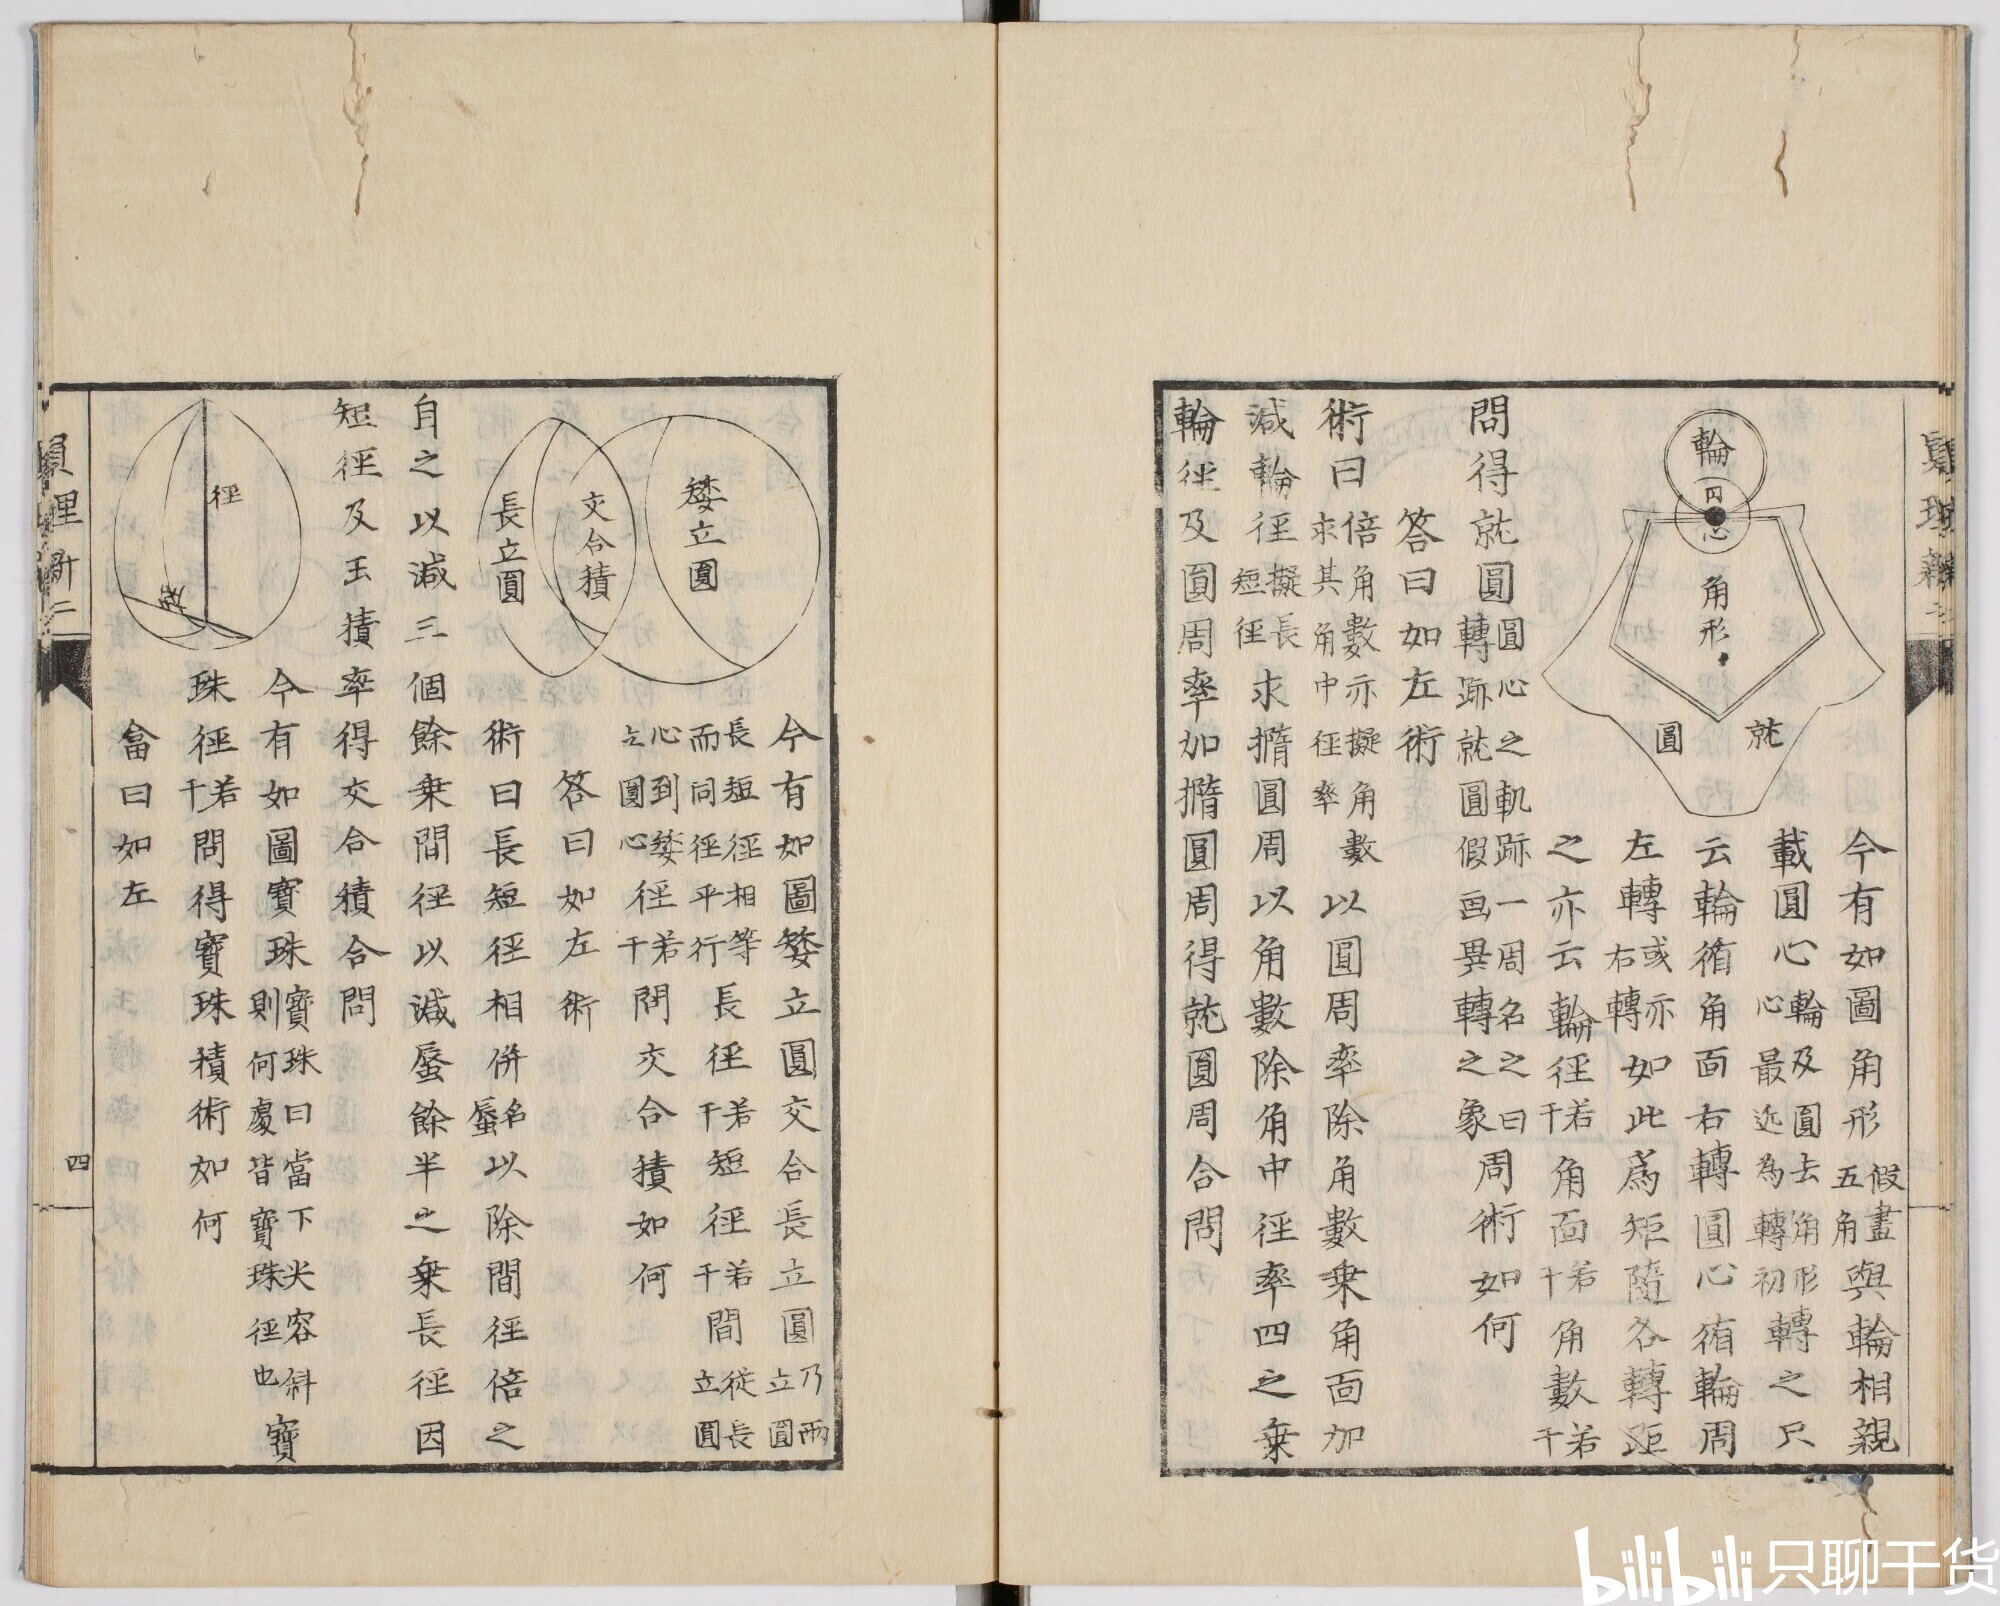 輪
円
心
角形
就
圓
今有如圖角形假畫五角與輪相親
載圓心輪及圓去角形心最近為轉初轉之只
云輪循角面右轉圓心循輪周
左轉或亦右轉如此爲矩隨各轉距
之亦云輪徑若干角面若干角數若干
問得就圓圓心之軌跡一周名之曰轉跡就圓假画異轉之象周術如何
答曰如左術
術曰倍角數亦擬角數求其角中徑率以圓周率除角數乘角面加
減輪徑擬長短徑求擱圓周以角數除角中徑率四之乗
輪徑及圓周率加擱圓周得就圓周合問
矮立圓
交合積
長立圓
今有如圖矮立圓交合長立圓乃兩立圓
長短徑相等而同徑平行長徑若干短徑若干間從長立圓
心到矮立圓心徑若干問交合積如何
答曰如左術
術曰長短徑相併名蜃以除間徑倍之
自之以減三個餘乗間徑以減蜃餘半之乗長徑因
短徑及玉積率得交合積合問
徑
今有如圖寶珠寶珠曰當下尖容斜則何處皆寶珠徑也寶
珠徑若干問得寶珠積術如何
畣曰如左
理新二
四
bilibili 只聊干货